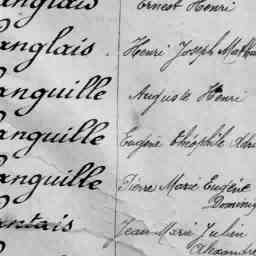 Ernest Henri
anglais Henri Joseph
anguille Auguste Henri
anguille Eugène Théophile
anguille Pierre Marie Eugène
Jean Marie Julien
Alexandre